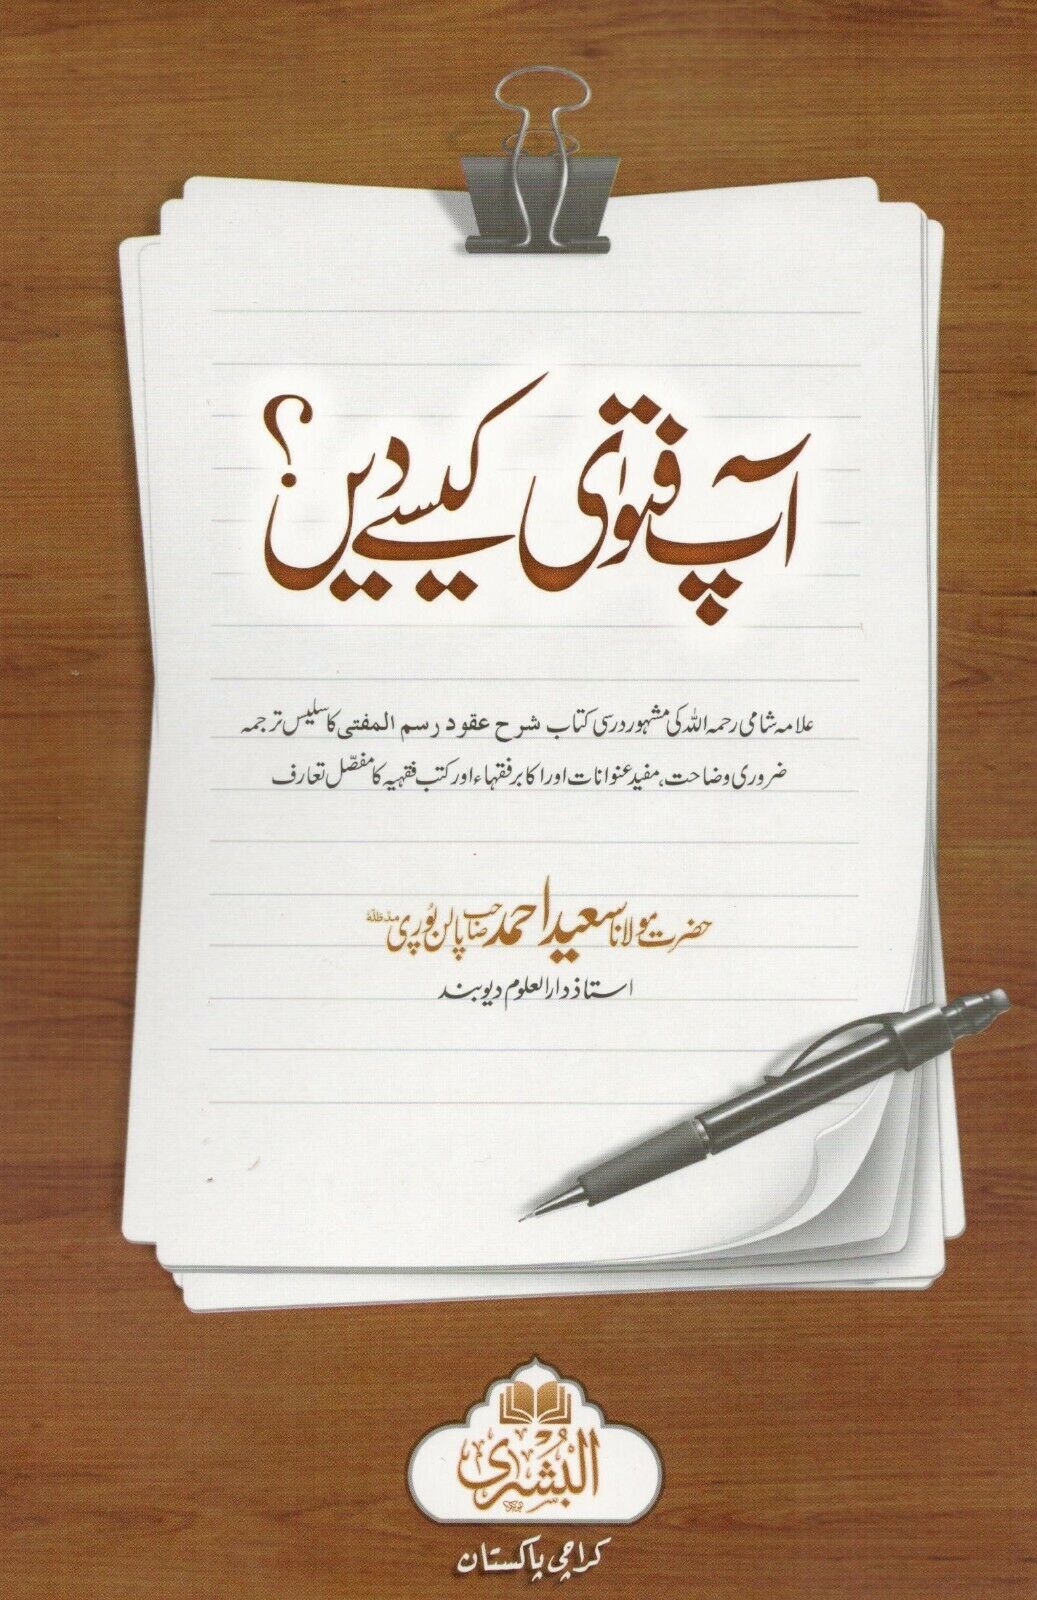 آپ فتویٰ کیسے دیں؟
علامہ شامی رحمہ اللہ کی مشہور درسی کتاب شرح عقود رسم المفتی کا سلیس ترجمہ
ضروری وضاحت، مفید عنوانات اور اکابر فقہاء اور کتب فقہیہ کا مفصّل تعارف
حضرت مولانا سعید احمد صاحب پالن پُوری مدظلہٗ
استاذ دار العلوم دیوبند
البُشریٰ
کراچی پاکستان